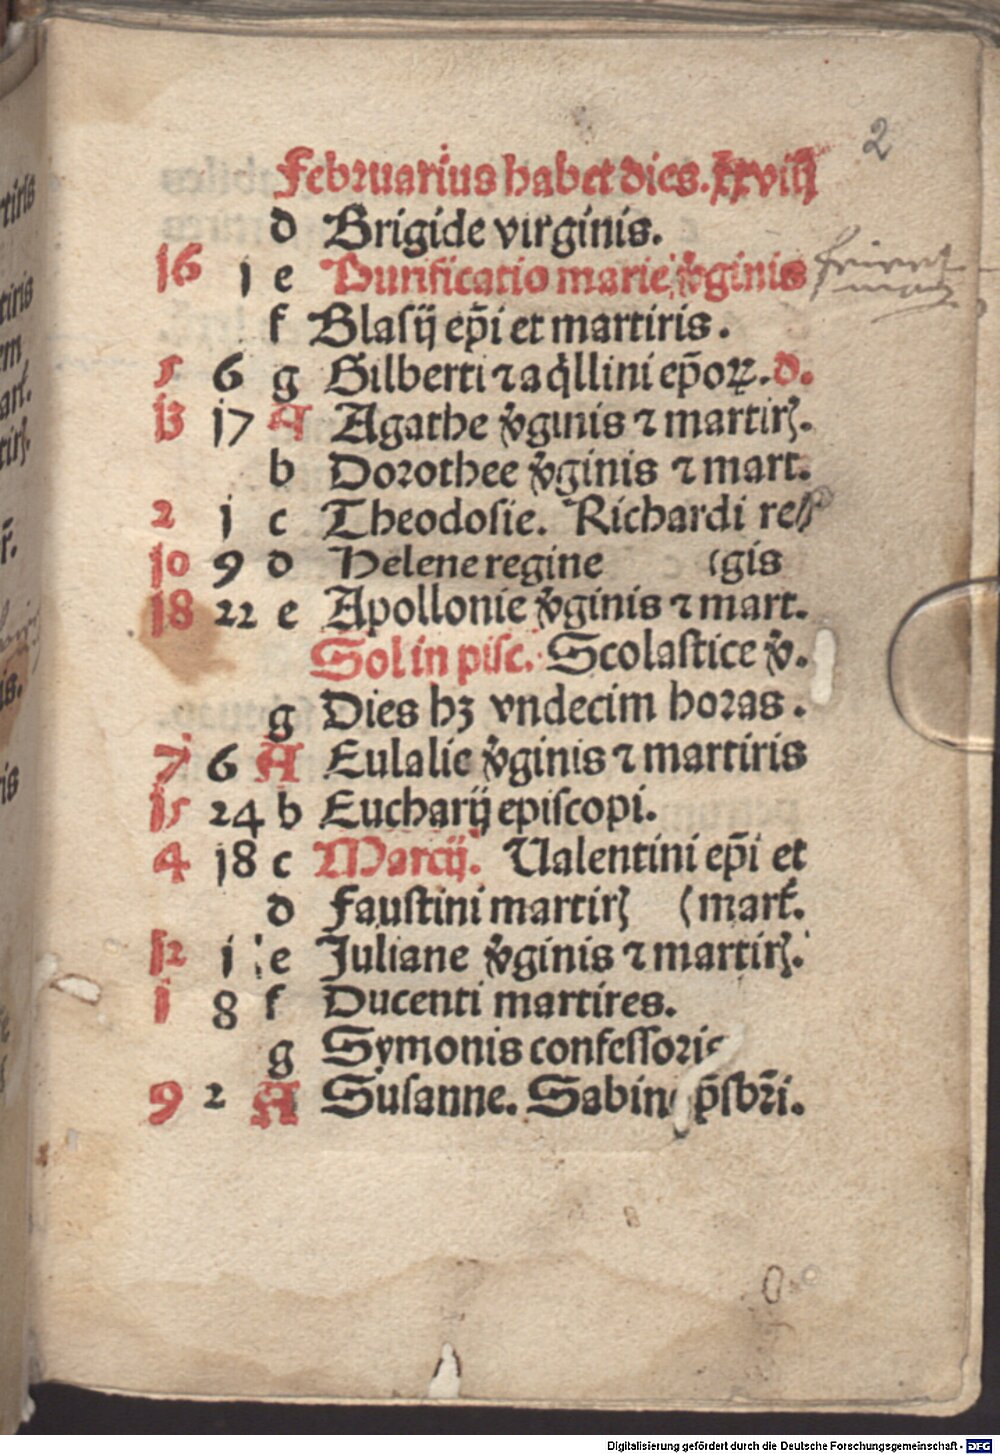 2
Februarius habet dies. xxviij
d Brigide virginis.
16 1 e Purificatio marie v̾ginis
f Blasij ep̃i et martiris.
5 6 g Gilberti ⁊ aq̇llini ep̃oꝝ. d.
13 17 A Agathe v̾ginis ⁊ martirꝭ.
b Dorothee v̾ginis ⁊ mart.
2 1 c Theodosie. Richardi re⸗
10 9 d Helene regine (gis
18 22 e Apollonie v̾ginis ⁊ mart.
Sol in pisc. Scolastice v̾.
g Dies hꝫ vndecim horas.
7 6 A Eulalie v̾ginis ⁊ martiris
15 24 b Eucharij episcopi.
4 18 c Marcij. Ualentini ep̃i et
d Faustini martirꝭ (mart̾.
12 1 e Juliane v̾ginis ⁊ martirꝭ.
1 8 f Ducenti martires.
g Symonis confessoris
9 2 A Susanne. Sabin p̃sbr̃i.
Digitalisierung gefördert durch die Deutsche Forschungsgemeinschaft - DFG